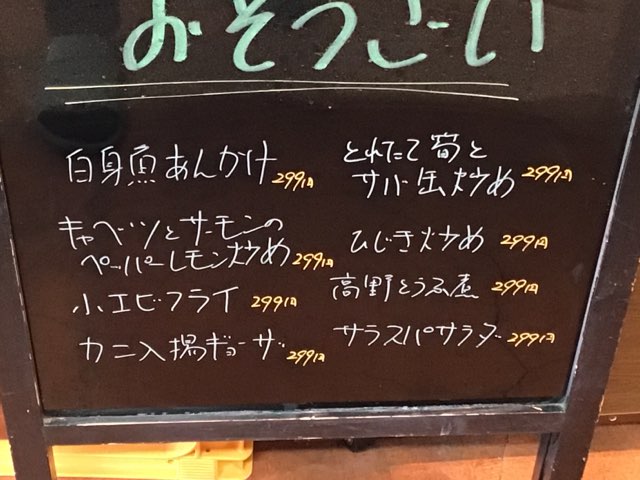 おそうざい
白身魚あんかけ 299円
キャベツとサーモンの
ペッパーレモン炒め 299円
小エビフライ 299円
カニ入揚ギョーザ 299円
とれたて筍と
サバ缶炒め 299円
ひじき炒め 299円
高野とうふ煮 299円
サラスパサラダ 299円